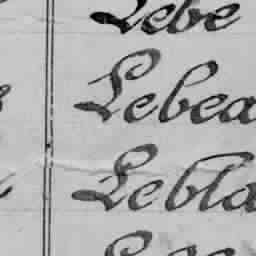 Lebe
Lebea
Lebla